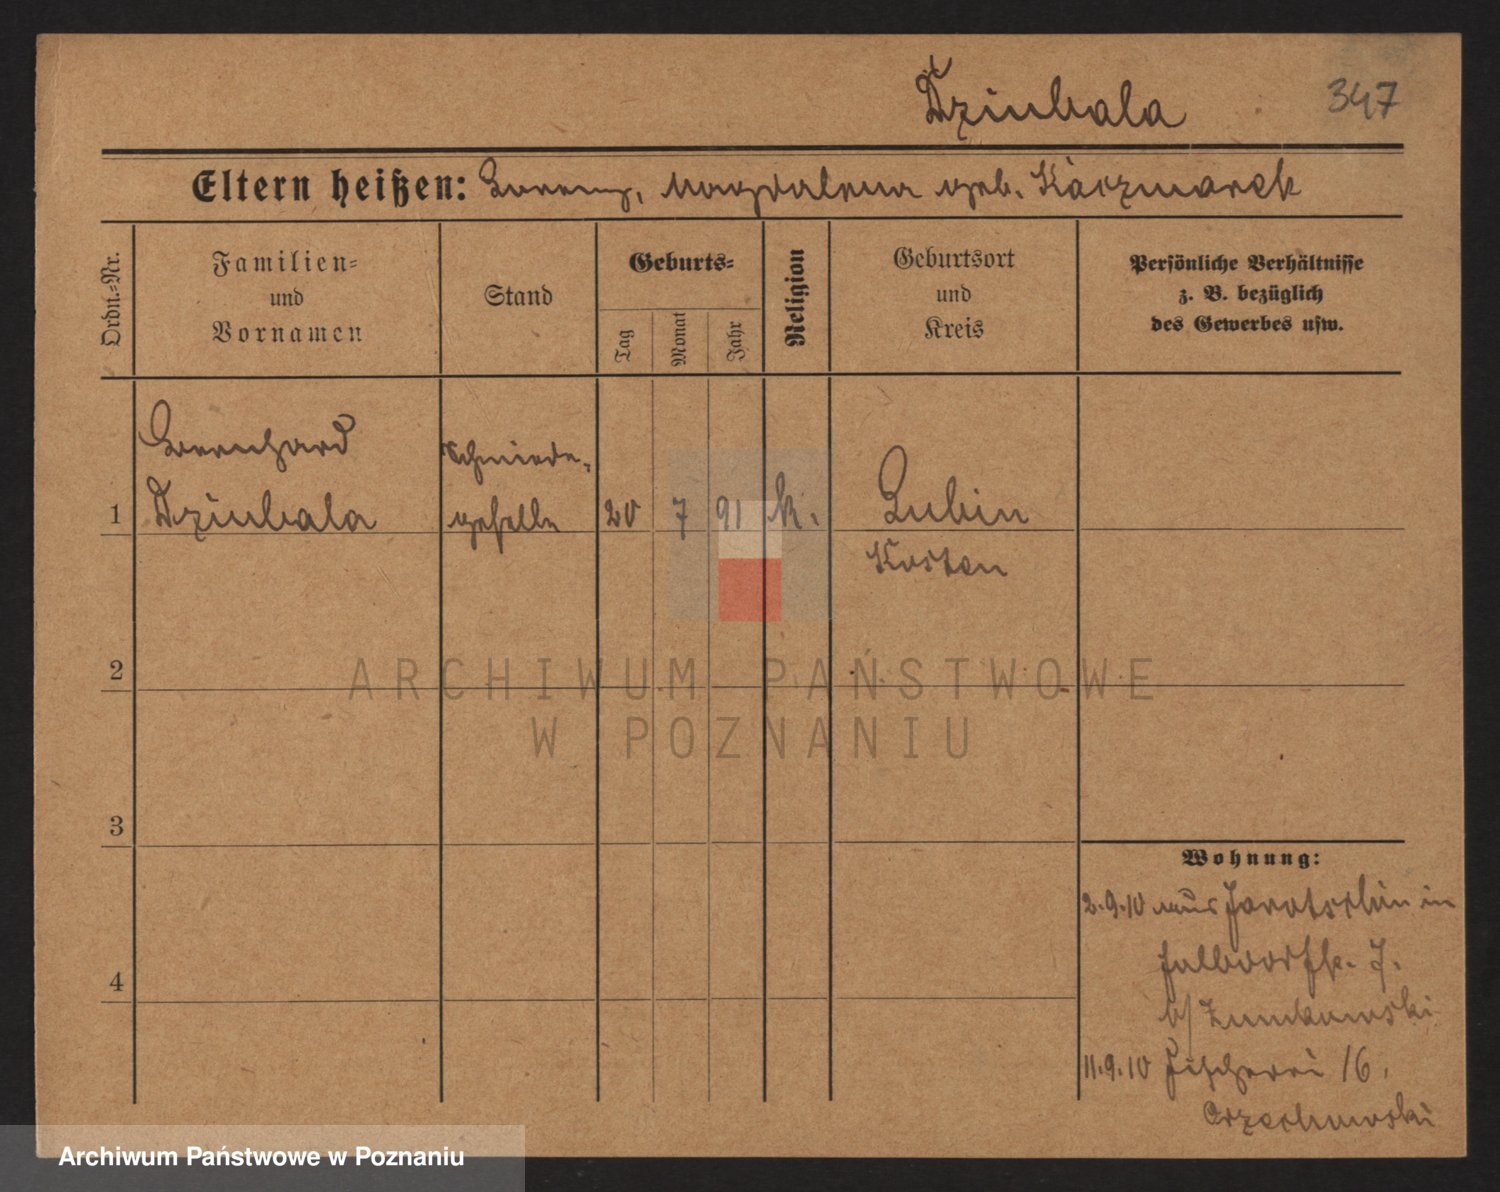 Dziubala 347
Eltern heißen: Lorenz, Magdalena geb. Kaczmarek
Ordn.-Nr.
Familien-
und
Vornamen
Stand
Geburts-
Tag
Monat
Jahr
Religion
Geburtsort
und
Kreis
Persönliche Verhältnisse
z. B. bezüglich
des Gewerbes usw.
Bernhard
Schmiede-
1 Dziubala geselle 20 7 91 k. Lubin
Kosten
2
ARCHIWUM PAŃSTWOWE
W POZNANIU
3
Wohnung:
2.9.10 aus Jarotschin in
7.
4
b/
11.9.10 Fischerei 16.
Orzechowski
Archiwum Państwowe w Poznaniu